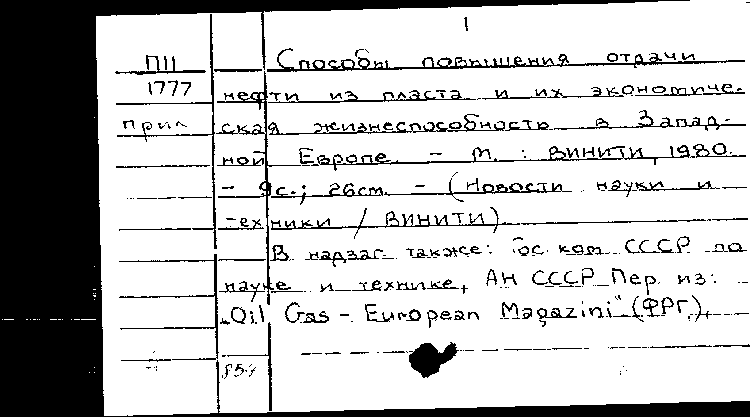 1
П11 Способы повышения отдачи
1777 нефти из пласта и их экономиче-
прил ская жизнеспособность в Запад-
ной Европе. - М. : ВИНИТИ, 1980.
- 9с.; 26см. - (Новости науки и
техники / ВИНИТИ).
В надзаг также: Гос. ком СССР по
науке и технике, АН СССР. Пер. из:
"Oil Gas - European Magazini" (ФРГ),